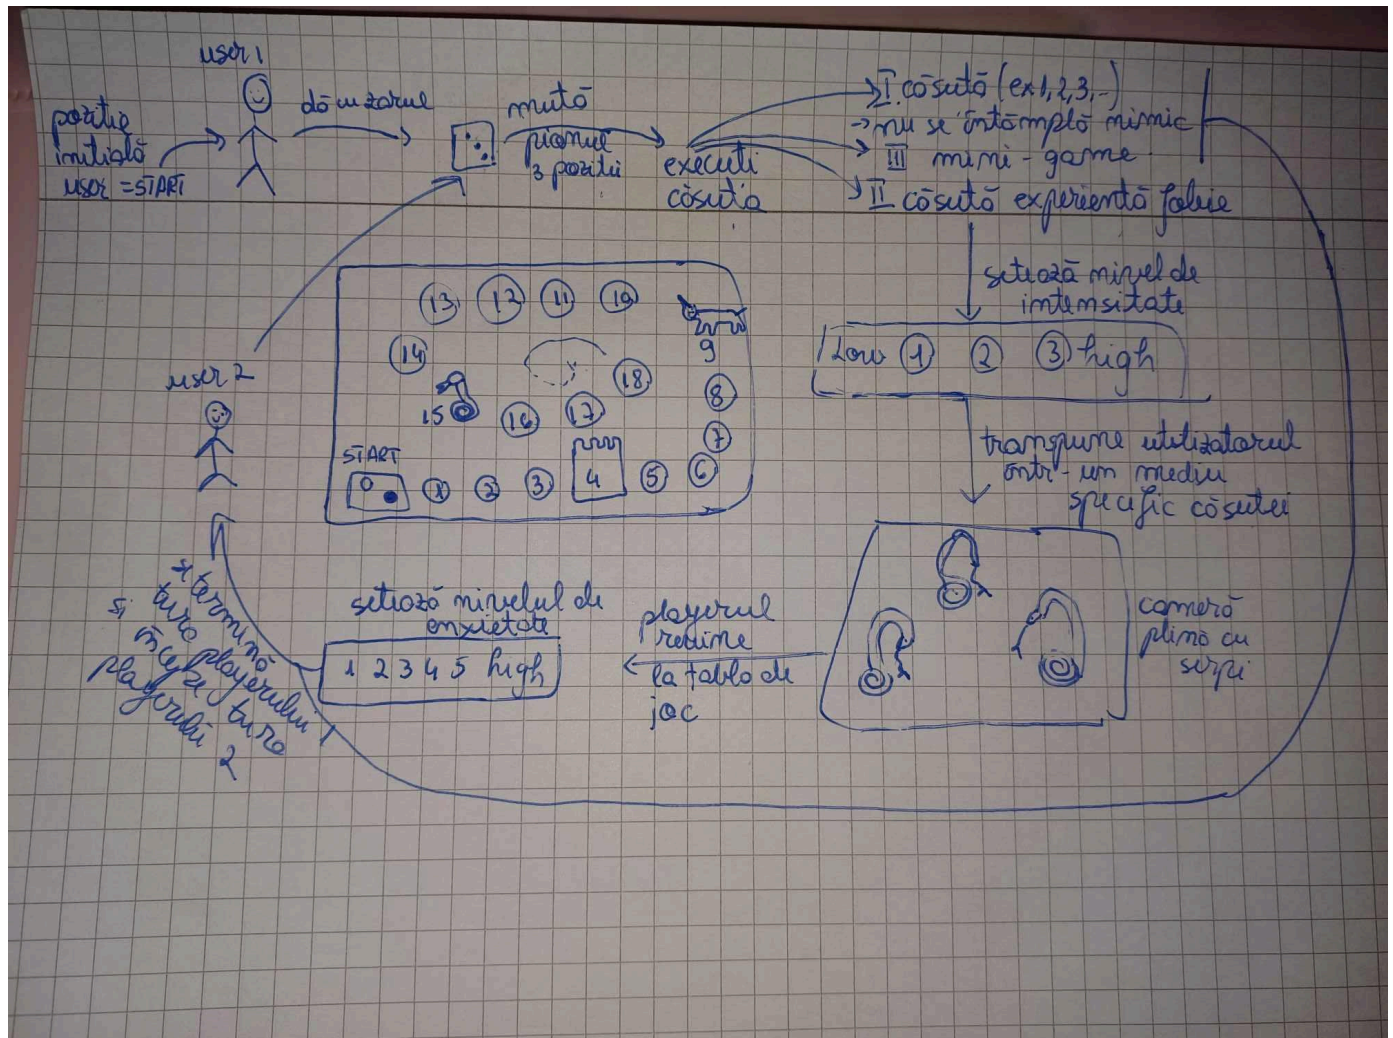 user 1
poziție
inițială
user = START
dă cu zarul
mută
pionul
3 poziții
execuți
căsuța
I căsută (ex 1, 2, 3, ..)
→ nu se întâmplă nimic
III mini-game
II căsută experiență fobie
setează nivel de
intensitate
Low 1 2 3 high
transpune utilizatorul
într-un mediu
specific căsuței
cameră
plină cu
șerpi
playerul
revine
la tabla de
joc
setează nivelul de
anxietate
1 2 3 4 5 high
se termină
tura playerului
și începe tura
playerului 2
user 2
13 12 11 10
9
14
18
8
15 16 17
7
START
1 2 3 4 5 6